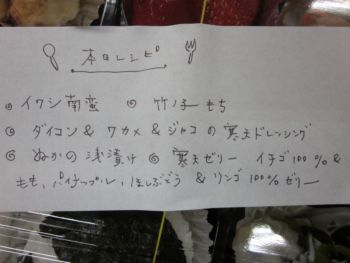 本日レシピ
◎ イワシ南蛮 ◎ 竹ノ子もち
◎ ダイコン & ワカメ & ジャコの寒天ドレッシング
◎ ぬかの浅漬け ◎ 寒天ゼリー イチゴ100% &
もも、パイナップル、ほしぶどう & リンゴ100%ゼリー